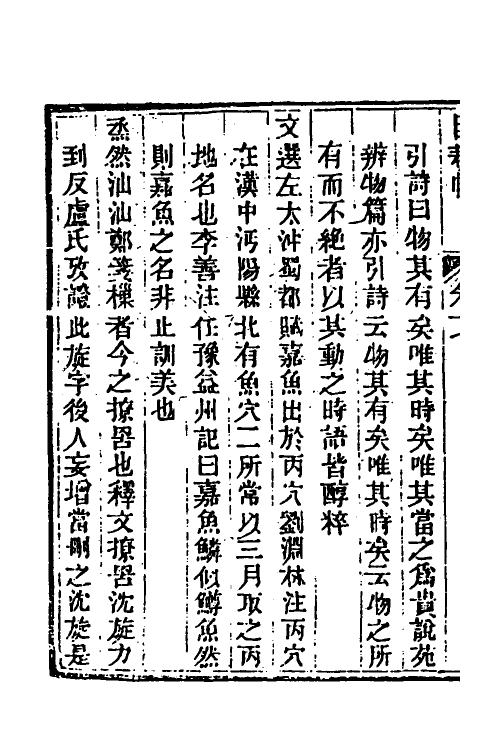 引詩曰物其有矣唯其時矣唯其當之爲貴說苑
辨物篇亦引詩云物其有矣唯其時矣云物之所
有而不絕者以其動之時語皆醇粹
文選左太沖蜀都賦嘉魚出於丙穴劉淵林注丙穴
在漢中沔陽縣北有魚穴二所常以三月取之丙
地名也李善注任豫益州記曰嘉魚鱗似鱒魚然
則嘉魚之名非止訓美也
烝然汕汕鄭箋樔者今之撩罟也釋文撩罟沈旋力
到反盧氏攷證此旋字後人妄增當刪之沈旋是